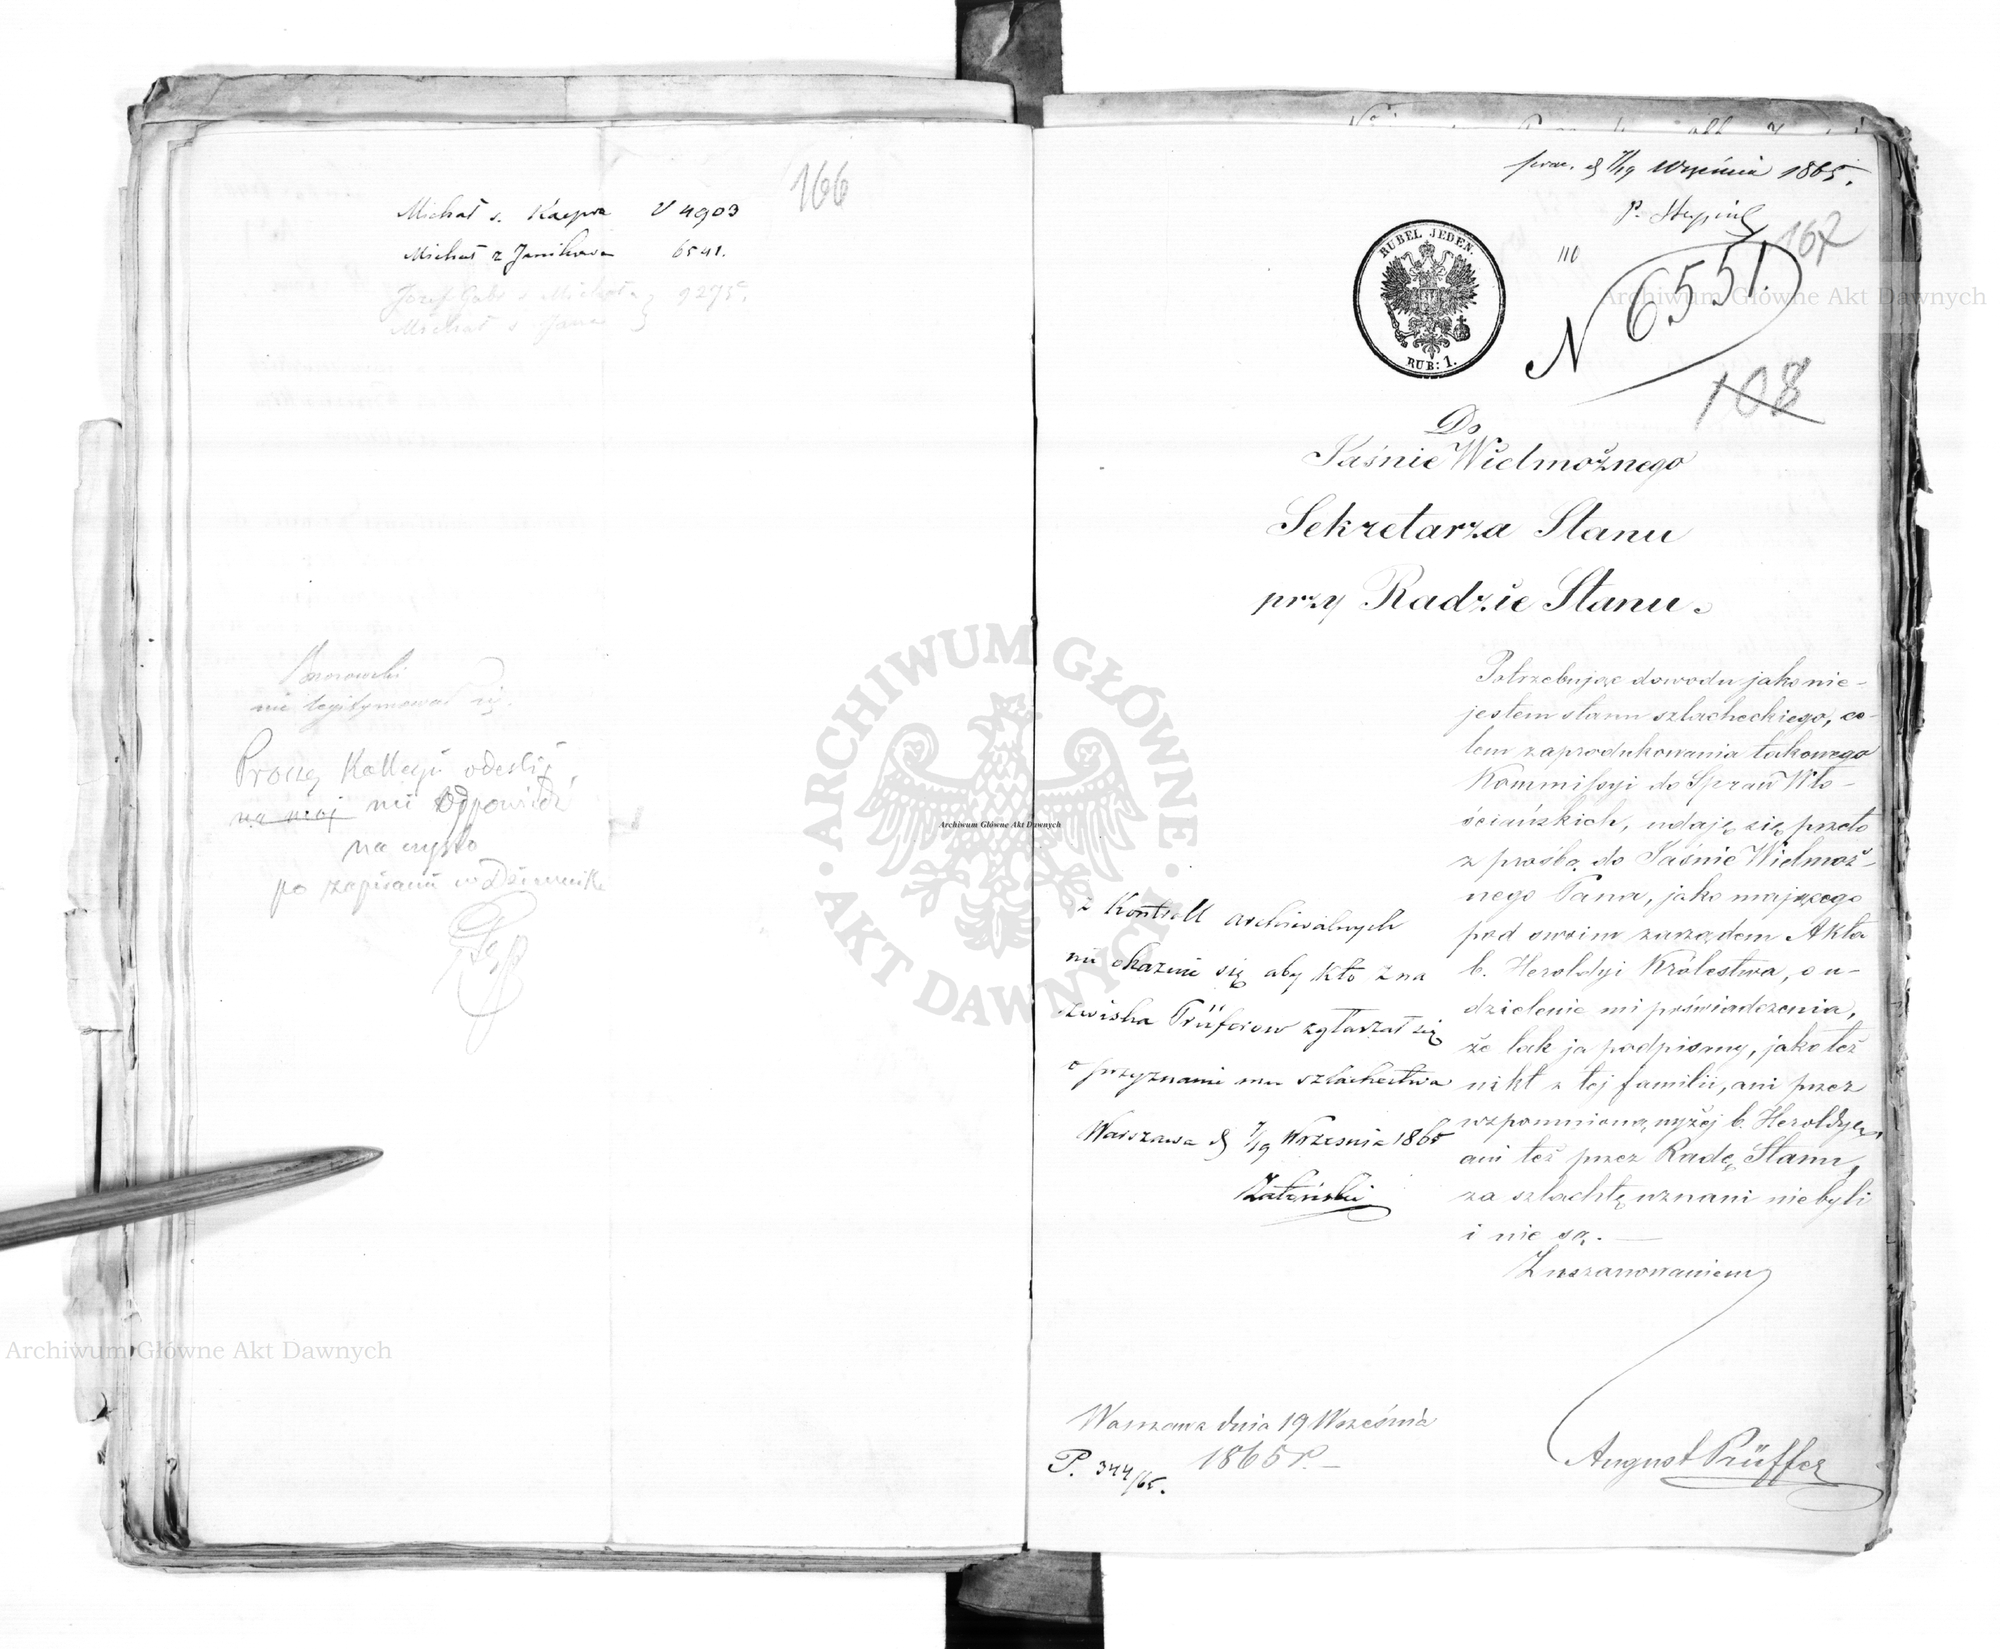 166
Michał s. Kacpra N 4903
Michał z Janikowa 6541.
Józef Gabr. s. Michała } 9275.
Michał s. Jana
Borowski
nie legitymował się.
Proszę Kollegii odeslij
na mój nie odpowiedź
na czysto
po zapisaniu w Dzienniku
prez. d 7/19 Września 1865.
P.
167
110
N 6551.
108
RUBEL JEDEN.
RUB: 1.
Do
Jaśnie Wielmożnego
Sekretarza Stanu
przy Radzie Stanu.
Potrzebując dowodu jako nie-
jestem stanu szlacheckiego, ce-
lem zaprodukowania takowego
Kommissyi do Spraw Wło-
ściańskich, udaję się przeto
z prośbą do Jaśnie Wielmoż-
nego Pana, jako mającego
pod swoim zarządem Akta
b. Heroldyi Królestwa, o u-
dzielenie mi poświadczenia,
że tak ja podpisany, jako też
nikt z tej familii, ani przez
wzpomnioną wyżej b. Heroldyę,
ani też przez Radę Stanu,
za szlachtę uznani nie byli
i nie są. —
Z uszanowaniem
August Prüffer
z Kontroll archiwalnych
nie okazuie się aby kto z na
zwiska Prüferow zgłaszał się
o przyznanie mu szlachectwa
Warszawa d 7/19 Września 1865
Warszawa dnia 19 Września
1865 r. —
P. 344/65.
Archiwum Główne Akt Dawnych
Archiwum Główne Akt Dawnych
Archiwum Główne Akt Dawnych
ARCHIWUM GŁÓWNE · AKT DAWNYCH ·